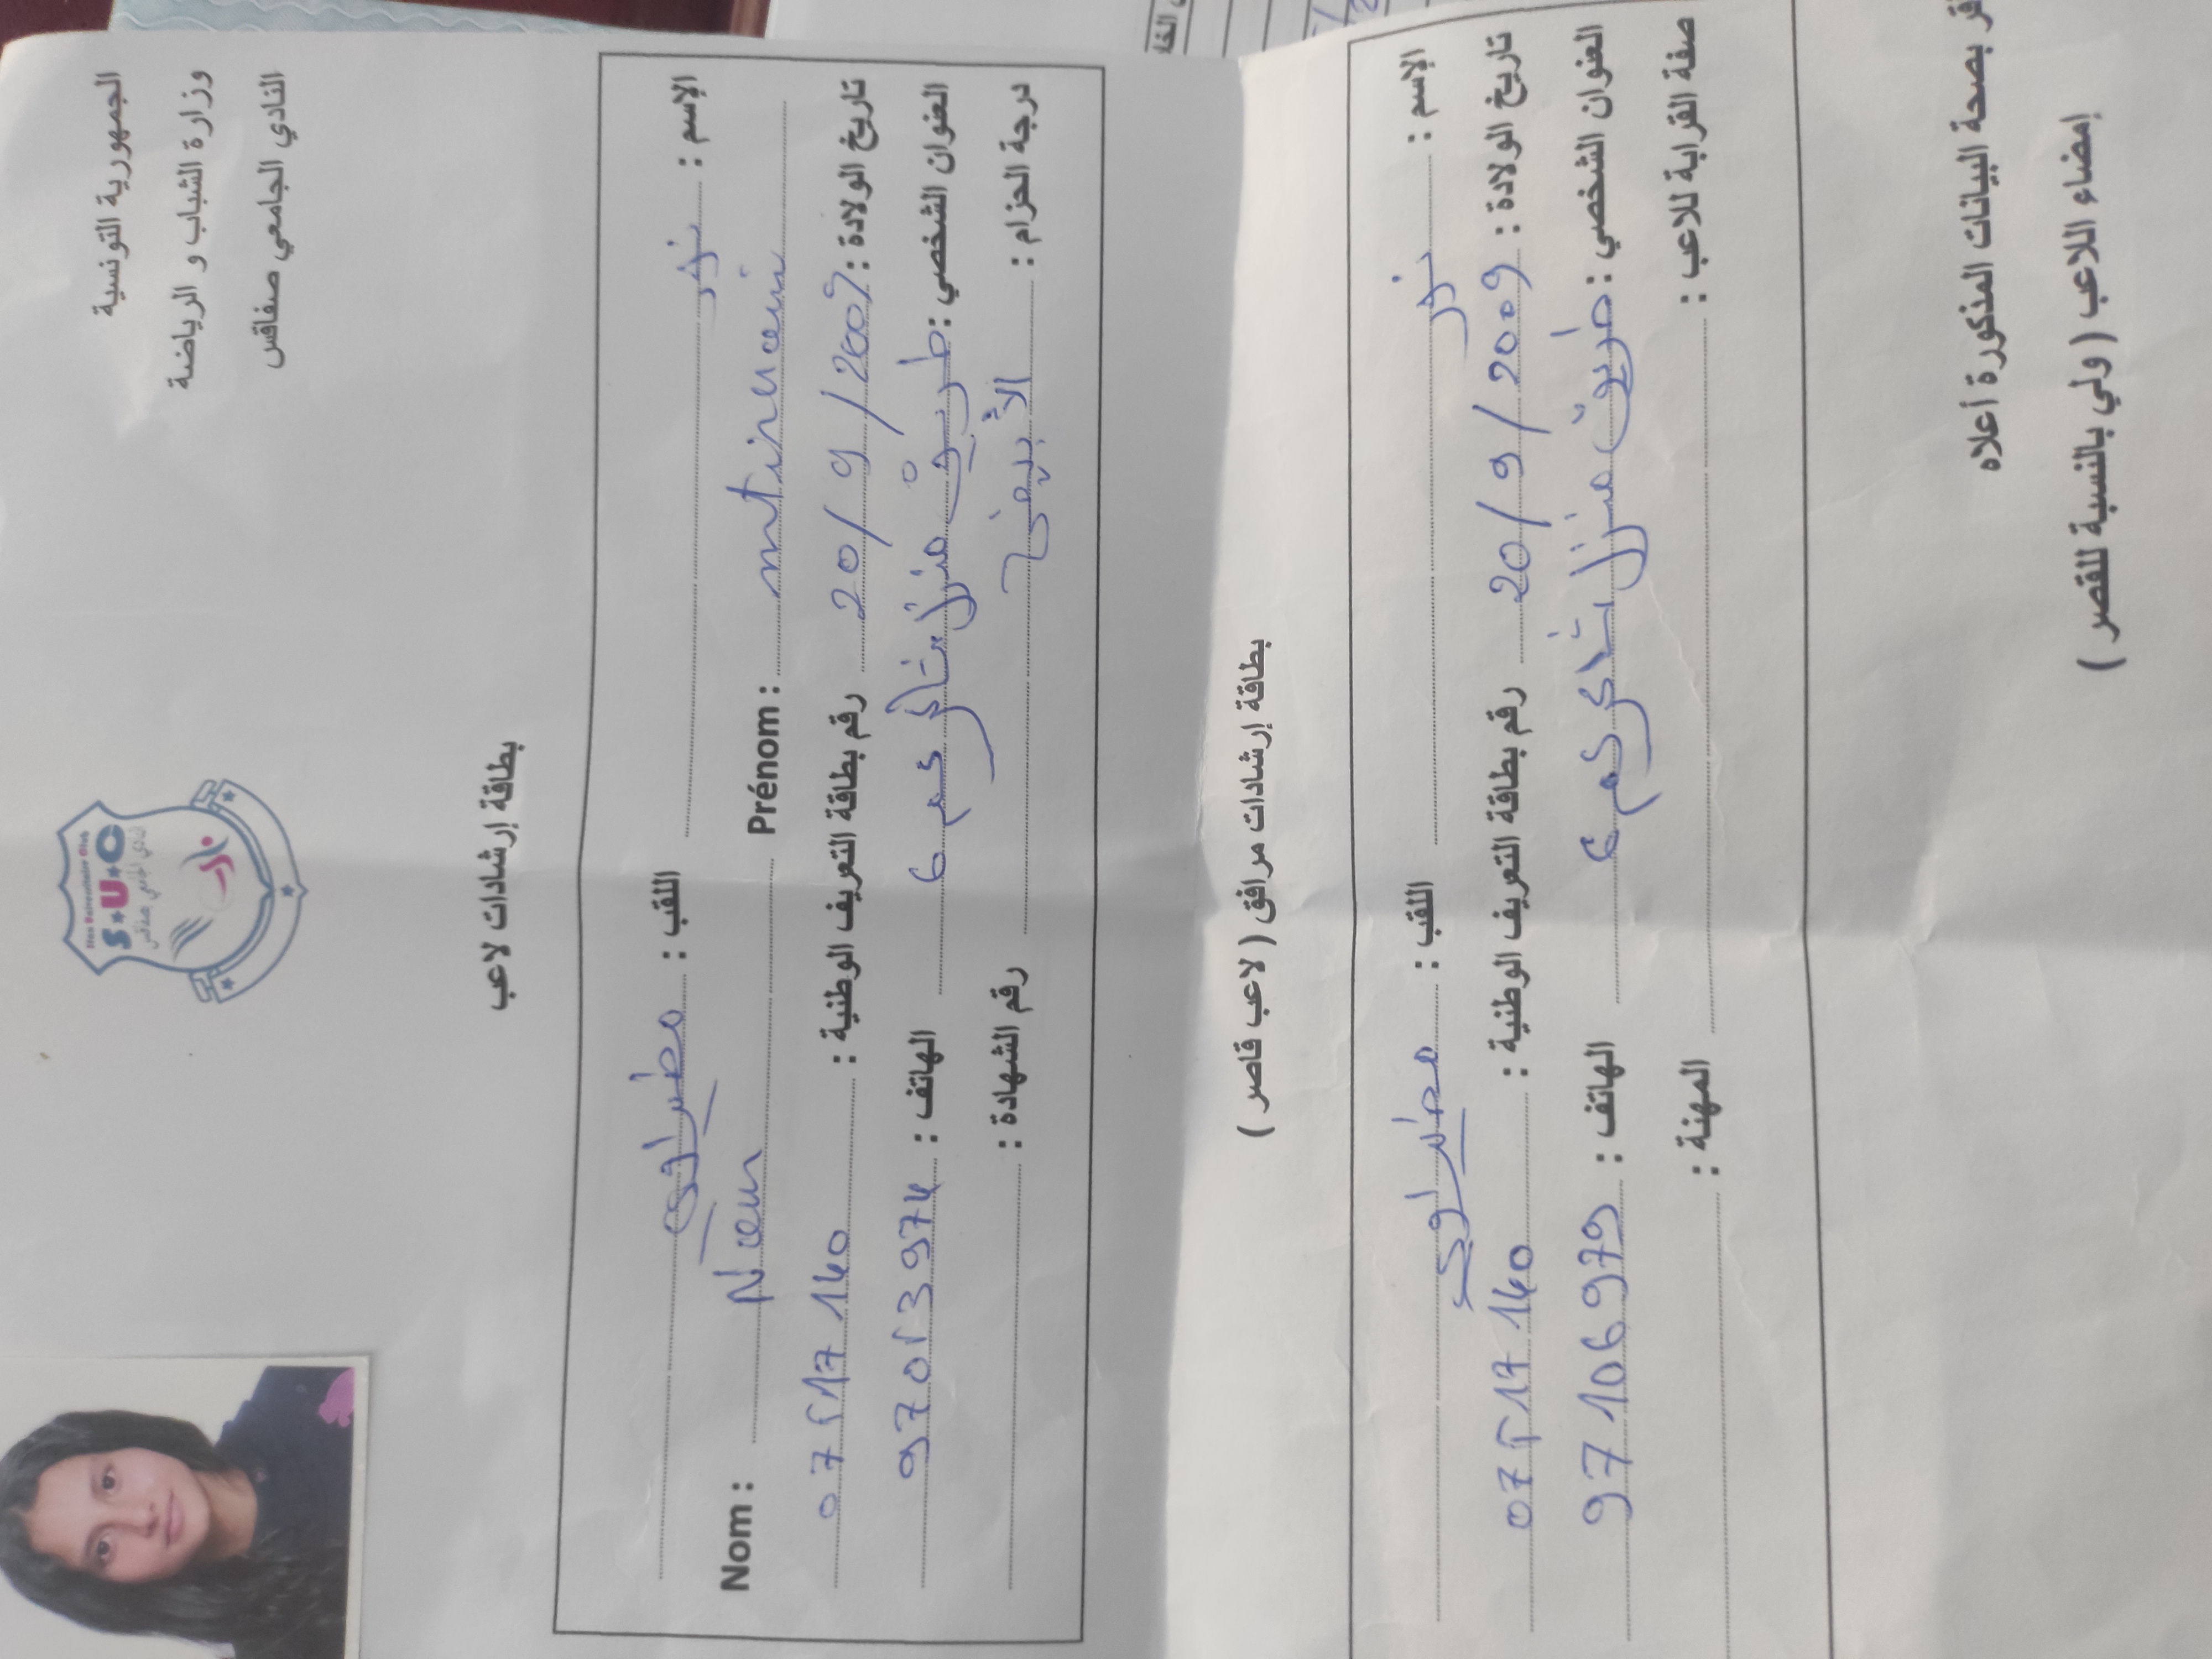 الجمهورية التونسية
وزارة الشباب و الرياضة
النادي الجامعي صفاقس
Sfax Universitaire Club
S.U.C
النادي الجامعي صفاقس
بطاقة إرشادات لاعب
الإسم : نور اللقب :
Nom : Nour Prénom :
تاريخ الولادة : 20/9/2009 رقم بطاقة التعريف الوطنية : 07517140
العنوان الشخصي : طريق منزل شاكر كم 6 الهاتف : 97013974
درجة الحزام : الأبيض رقم الشهادة :
بطاقة إرشادات مرافق ( لاعب قاصر )
الإسم : نور اللقب :
تاريخ الولادة : 20/9/2009 رقم بطاقة التعريف الوطنية : 07517140
العنوان الشخصي : طريق منزل شاكر كم 6 الهاتف : 97106979
صفة القرابة للاعب : المهنة :
بصحة البيانات المذكورة أعلاه
إمضاء اللاعب ( ولي بالنسبة للقصر )